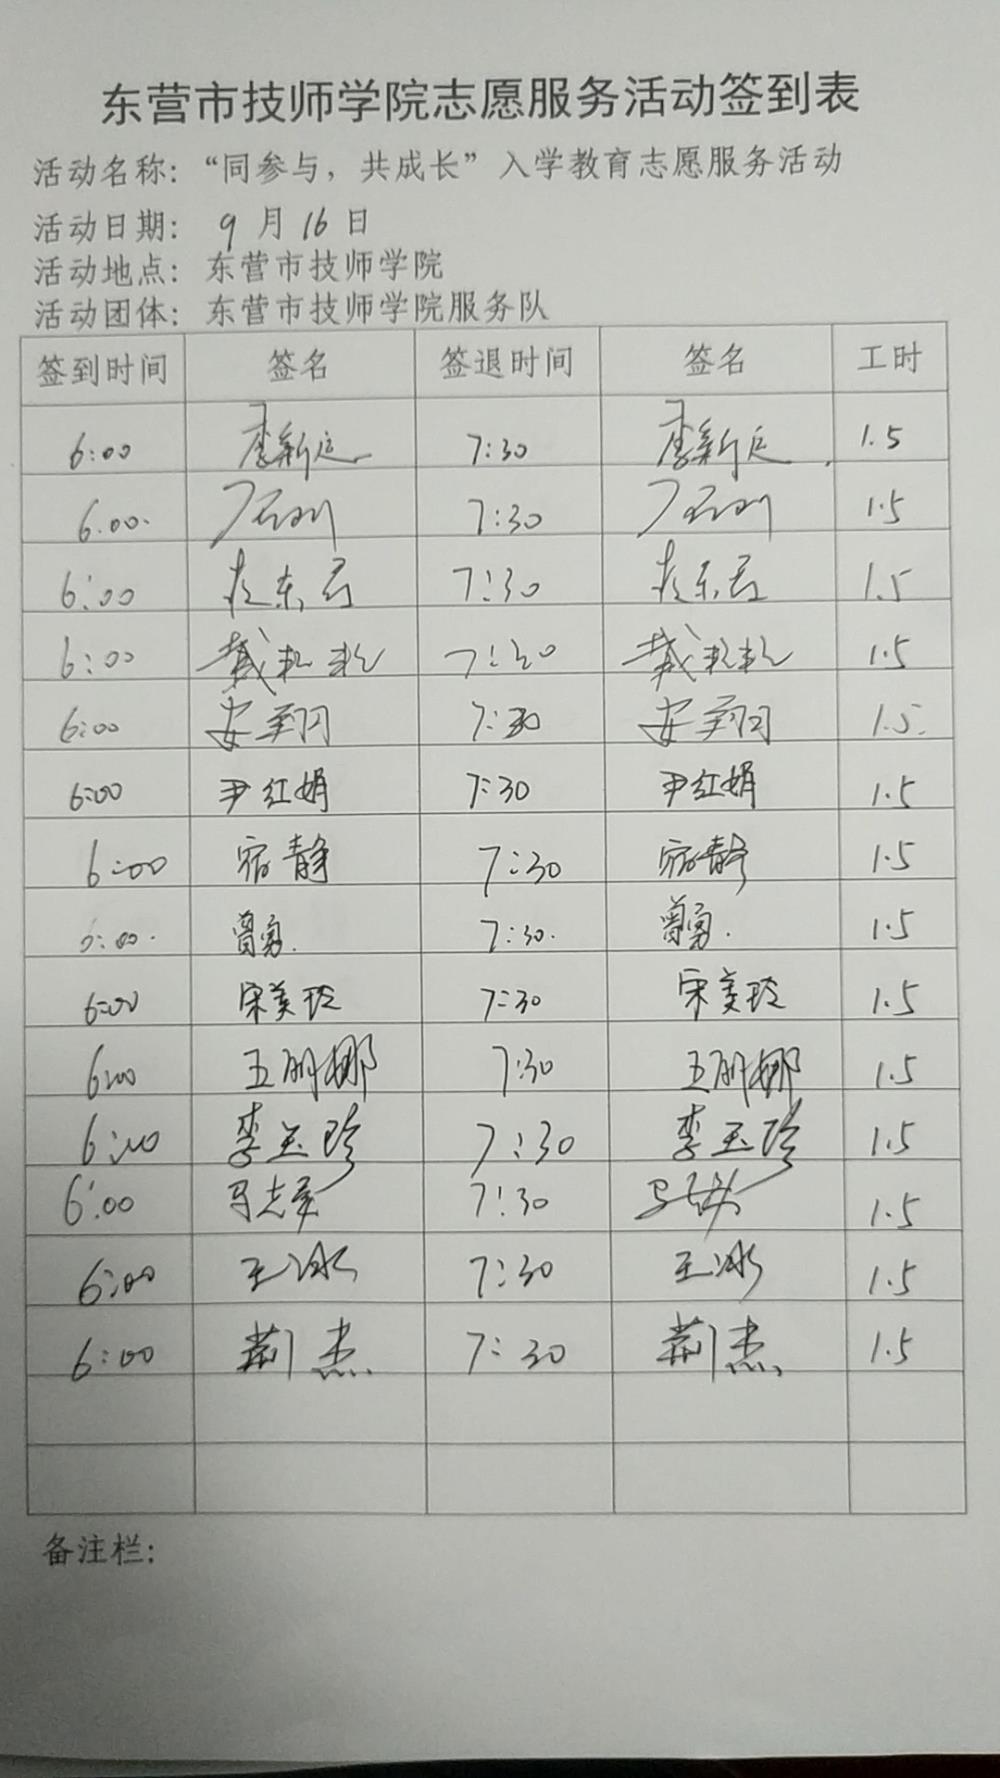 东营市技师学院志愿服务活动签到表
活动名称：“同参与，共成长”入学教育志愿服务活动
活动日期： 9 月 16 日
活动地点： 东营市技师学院
活动团体： 东营市技师学院服务队
签到时间 签名 签退时间 签名 工时
6:00 7:30 1.5
6:00 7:30 1.5
6:00 7:30 1.5
6:00 7:30 1.5
6:00 安翔 7:30 安翔 1.5
6:00 尹红娟 7:30 尹红娟 1.5
6:00 宿静 7:30 宿静 1.5
6:00 曾勇 7:30 曾勇 1.5
6:00 宋美玲 7:30 宋美玲 1.5
6:00 7:30 1.5
6:00 李玉珍 7:30 李玉珍 1.5
6:00 7:30 1.5
6:00 王冰 7:30 王冰 1.5
6:00 荆杰 7:30 荆杰 1.5
备注栏：